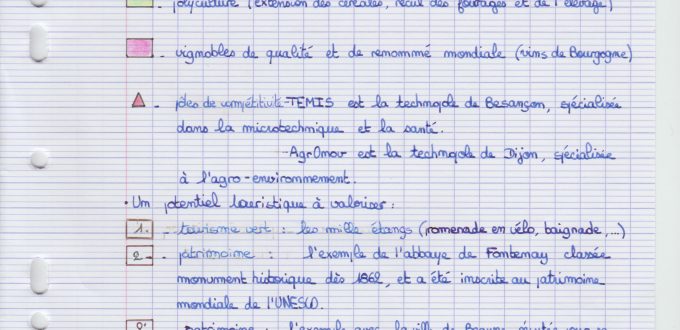 - polyculture (extension des céréales, recul des fourrages et de l'élevage)
- vignobles de qualité et de renommé mondiale (vins de Bourgogne)
- pôles de compétitivité - TEMIS est la technopole de Besançon, spécialisée
dans la microtechnique et la santé.
- AgrOnov est la technopole de Dijon, spécialisée
à l'agro-environnement.
• Un potentiel touristique à valoriser :
1. - tourisme vert : les mille étangs (promenade en vélo, baignade, ...)
2. - patrimoine : l'exemple de l'abbaye de Fontenay classée
monument historique dès 1862, et a été inscrite au patrimoine
mondiale de l'UNESCO.
- patrimoine : l'exemple avec la ville de Beaune